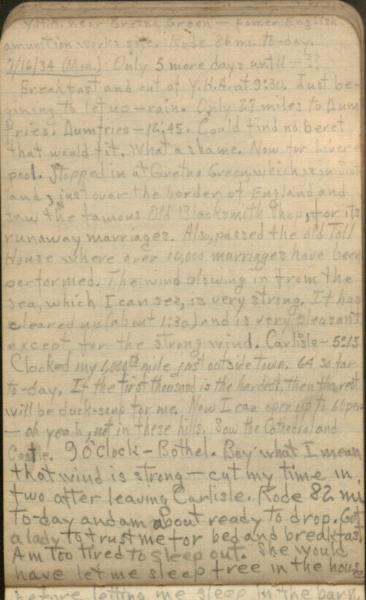 Y.H.A. near Gretna Green — former English
amunition works site. Rode 86 mi. to-day.
7/16/34 (Mon.) Only 5 more days until — ??
Breakfast and out of Y.H.A. at 9:30. Just be-
gining to let up — rain. Only 27 miles to Dum
fries. Dumfries — 12:45. Could find no beret
that would fit. What a shame. Now for Liver
pool. Stopped in at Gretna Green, which is in
land, just over the border of England and
saw the famous Old Blacksmith Shop, for its
runaway marriages. Also, passed the old Toll
House where over 10,000 marriages have been
performed. The wind blowing in from the
sea, which I can see, is very strong. It has
cleared up (about 1:30) and is very pleasant
except for the strong wind. Carlisle — 5:15
Clocked my 1,000th mile just outside town. 64 so far
to-day. If the first thousand is the hardest, then the rest
will be duck-soup for me. Now I can open up to 60
— oh yeah, not in these hills. Saw the Cathedral and
Castle. 9 o'clock — Bothel. Boy what I mean
that wind is strong — cut my time in
two after leaving Carlisle. Rode 82 mi
to-day and am about ready to drop. Got
a lady to trust me for bed and breakfast
Am too tired to sleep out. She would
have let me sleep free in the house
before letting me sleep in the barn.